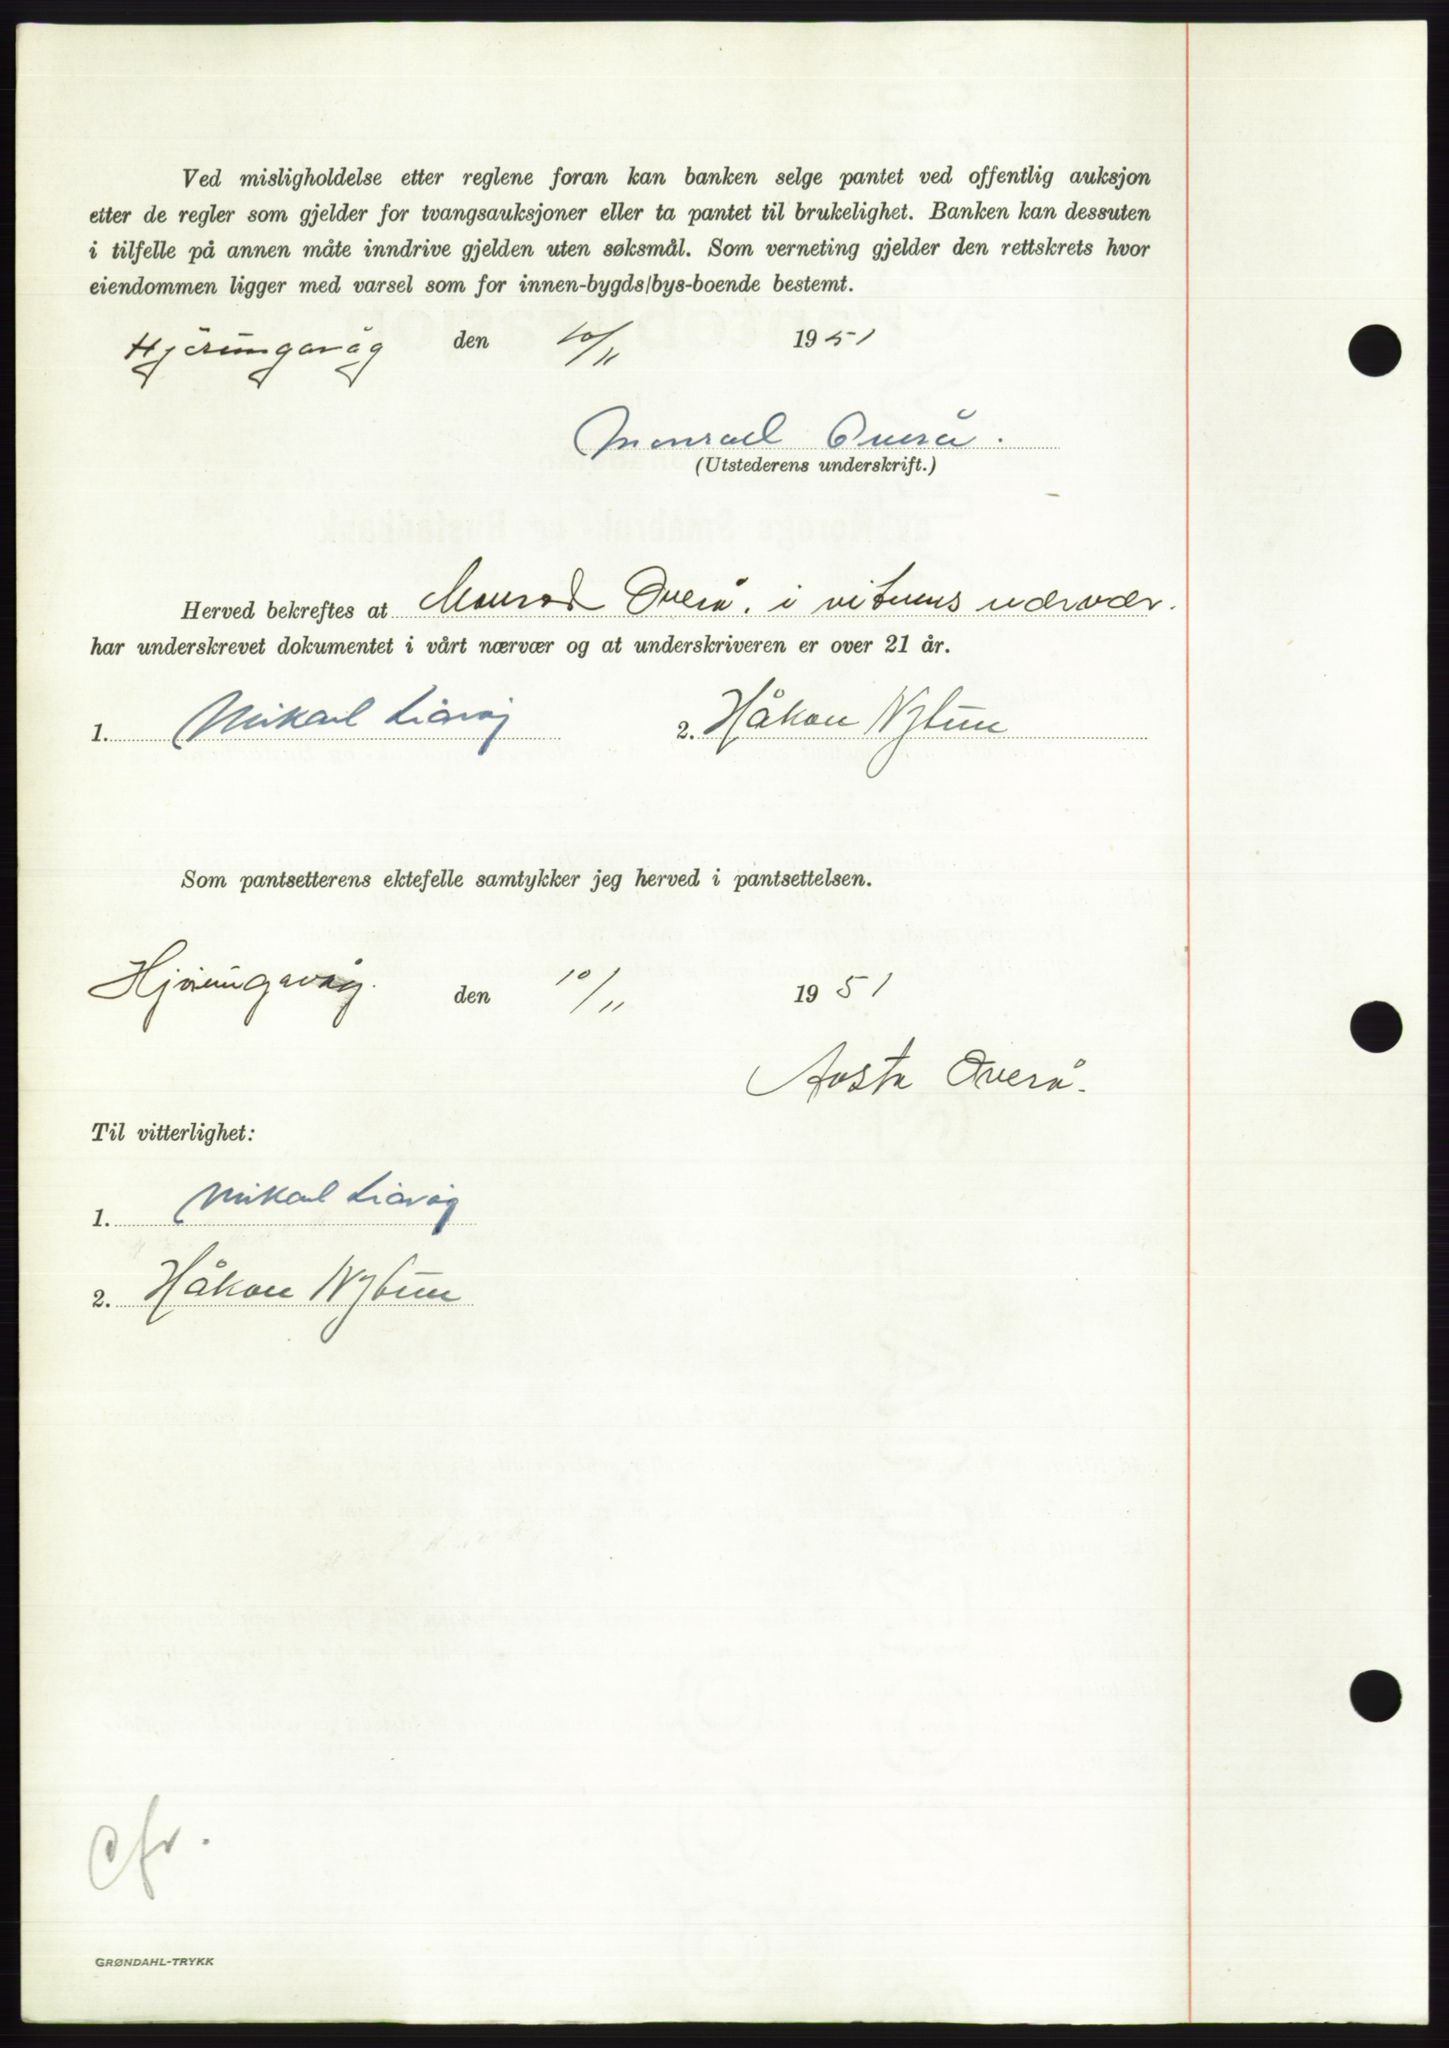 Ved misligholdelse etter reglene foran kan banken selge pantet ved offentlig auksjon
etter de regler som gjelder for tvangsauksjoner eller ta pantet til brukelighet. Banken kan dessuten
i tilfelle på annen måte inndrive gjelden uten søksmål. Som verneting gjelder den rettskrets hvor
eiendommen ligger med varsel som for innen-bygds/bys-boende bestemt.
Hjörungavåg den 10/11 1951
Monrad Överå.
(Utstederens underskrift.)
Herved bekreftes at Monrad Överå. i vitnens nærvær.
har underskrevet dokumentet i vårt nærvær og at underskriveren er over 21 år.
1. Mikael Liavåg 2. Håkon Nytun
Som pantsetterens ektefelle samtykker jeg herved i pantsettelsen.
Hjörungavåg. den 10/11 1951
Aasta Överå.
Til vitterlighet:
1. Mikael Liavåg
2. Håkon Nytun
cfr.
GRØNDAHL-TRYKK